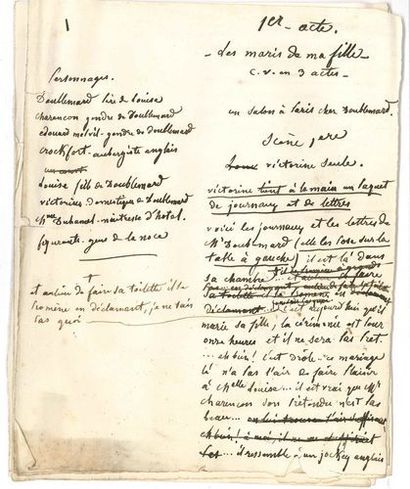 1
Personnages.
Doublemard père de Louise
Charençon gendre de Doublemard
Edouard Melvil - gendre de Doublemard
Crockfort - aubergiste anglais
Louise fille de Doublemard
Victorine domestique de Doublemard
Mme Duhamel - maitresse d'hotel.
figurants - gens de la noce
+
et au lieu de faire sa toilette il se
promène en déclamant, je ne sais
pas quoi
1er - acte.
- Les maris de ma fille
C. V. en 3 actes -
un salon à Paris chez Doublemard.
Scène 1ere
Victorine seule.
Victorine tient à la main un paquet
de journaux et de lettres
voici les journaux et les lettres de
Mr Doublemard (elle les pose sur la
table à gauche) il est là dans
sa chambre
sa toilette et se promène en déclamant
déclamant c'est aujourd'hui qu'il
marie sa fille, la cérémonie est pour
onze heures et il ne sera pas prêt.
... eh bien! c'est drôle... ce mariage
là n'a pas l'air de faire plaisir
à Melle Louise... il est vrai que Mr
Charençon son prétendu n'est pas
beau...
eh bien, à moi, il
il ressemble à un jockey anglais